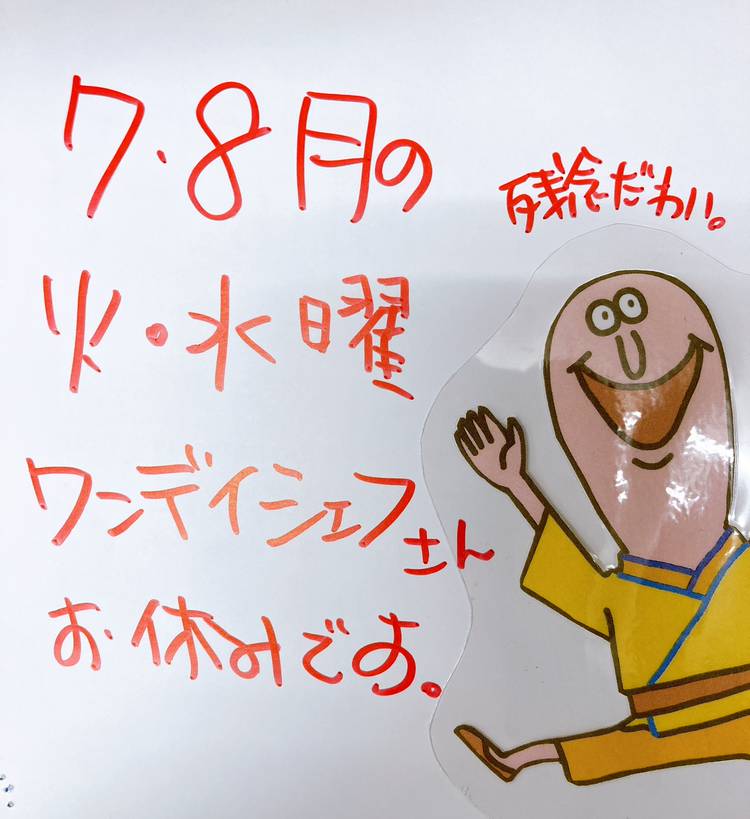 7・8月の
残念だわい。
火・水曜
ワンデイシェフさん
お休みです。